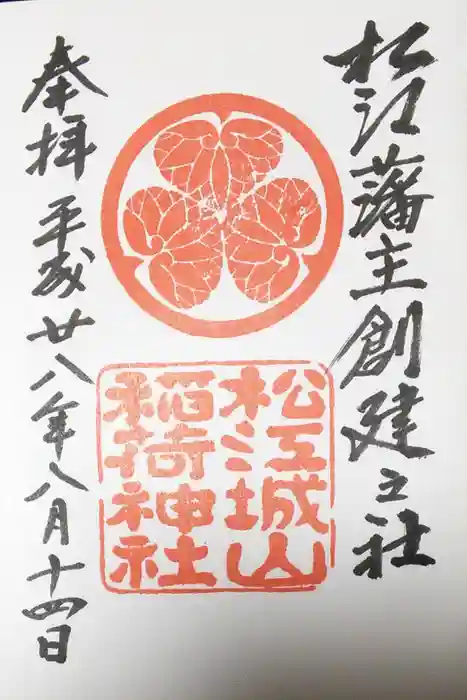 松江藩主創建之社
松江城山
稲荷神社
奉拝 平成廿八年八月十四日